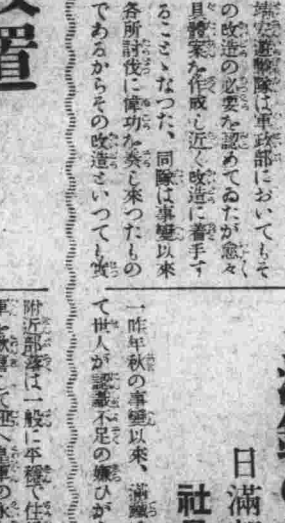 靖安遊擊隊は軍政部においてもそ
の改造の必要を認めてゐたが愈々
具體案を作成し近く改造に着手す
ることゝなつた、同隊は事變以來
各所討伐に偉功を奏し來つたもの
であるからその改造といつても實
置
日滿
社
一昨年秋の事變以來、滿
て世人が認識不足の嫌ひが
附近部落は一般に平穩で